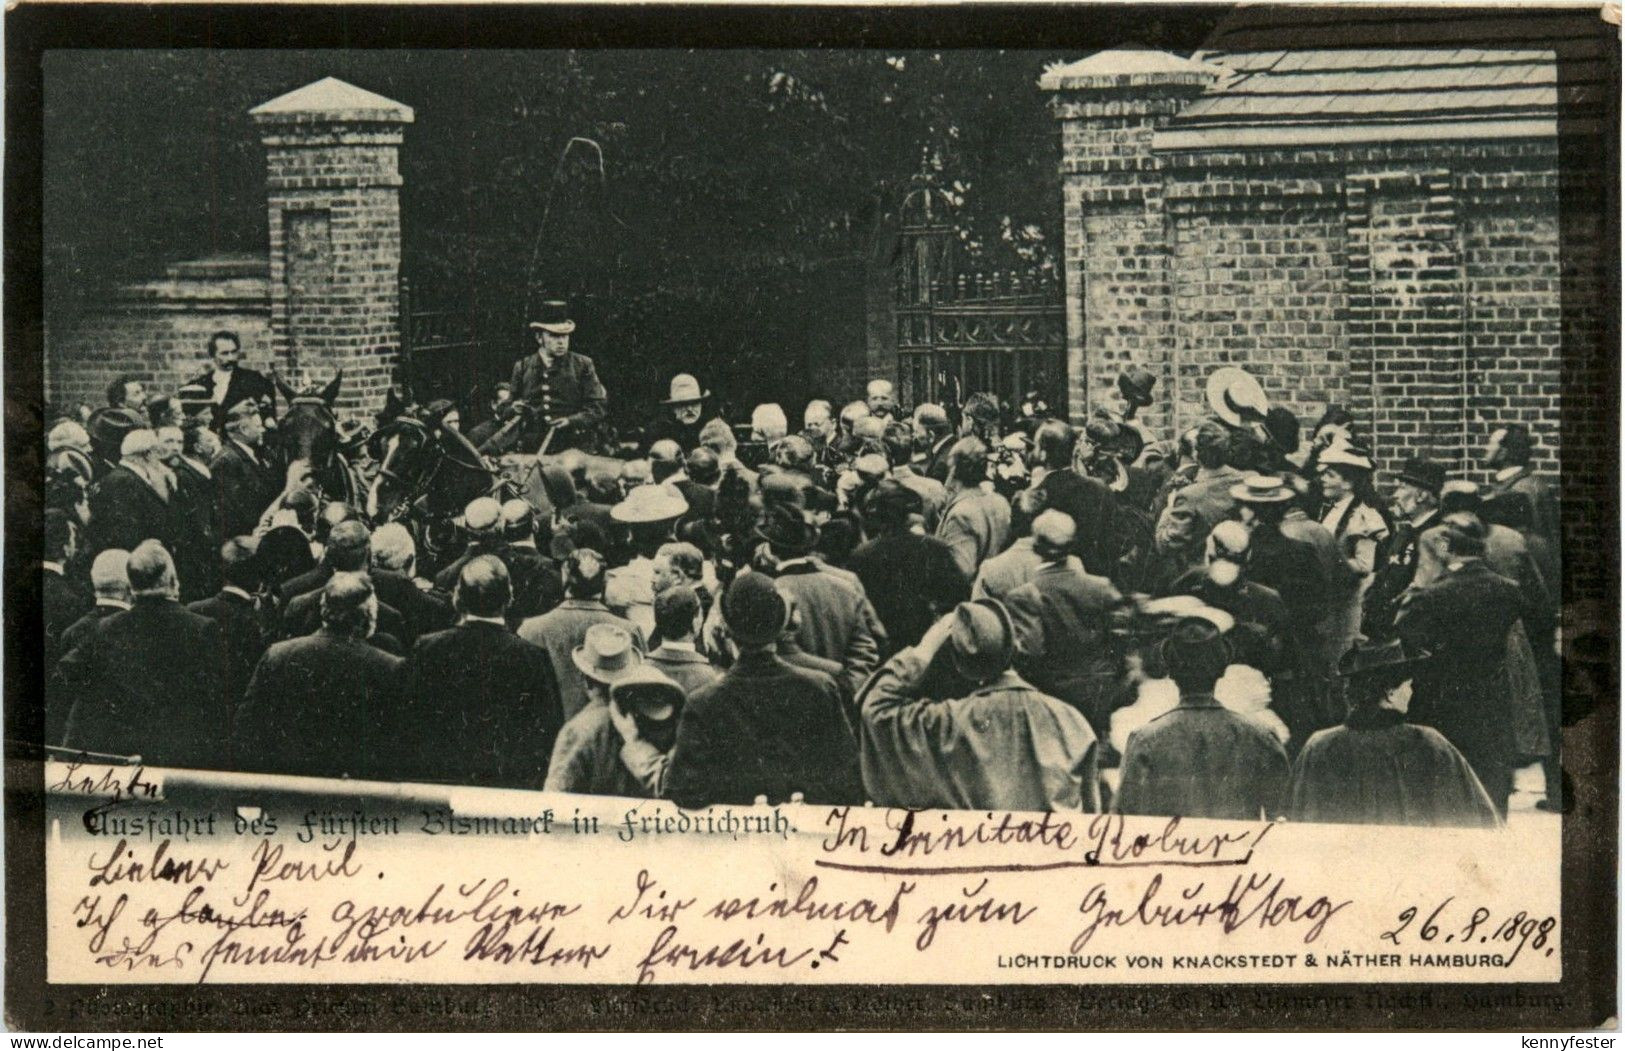 Letzte
Ausfahrt des Fürsten Bismarck in Friedrichruh.
In Trinitate Robur!
Lieber Paul.
Ich glaube gratuliere dir vielmas zum Geburtstag
26.8.1898.
dies sendet dein Vetter Erwin.
LICHTDRUCK VON KNACKSTEDT & NÄTHER HAMBURG
2 Photographie Hamburg Knackstedt & Näther, Hamburg. Verlag: G. W. Niemeyer Nachfl., Hamburg.
kennyfester